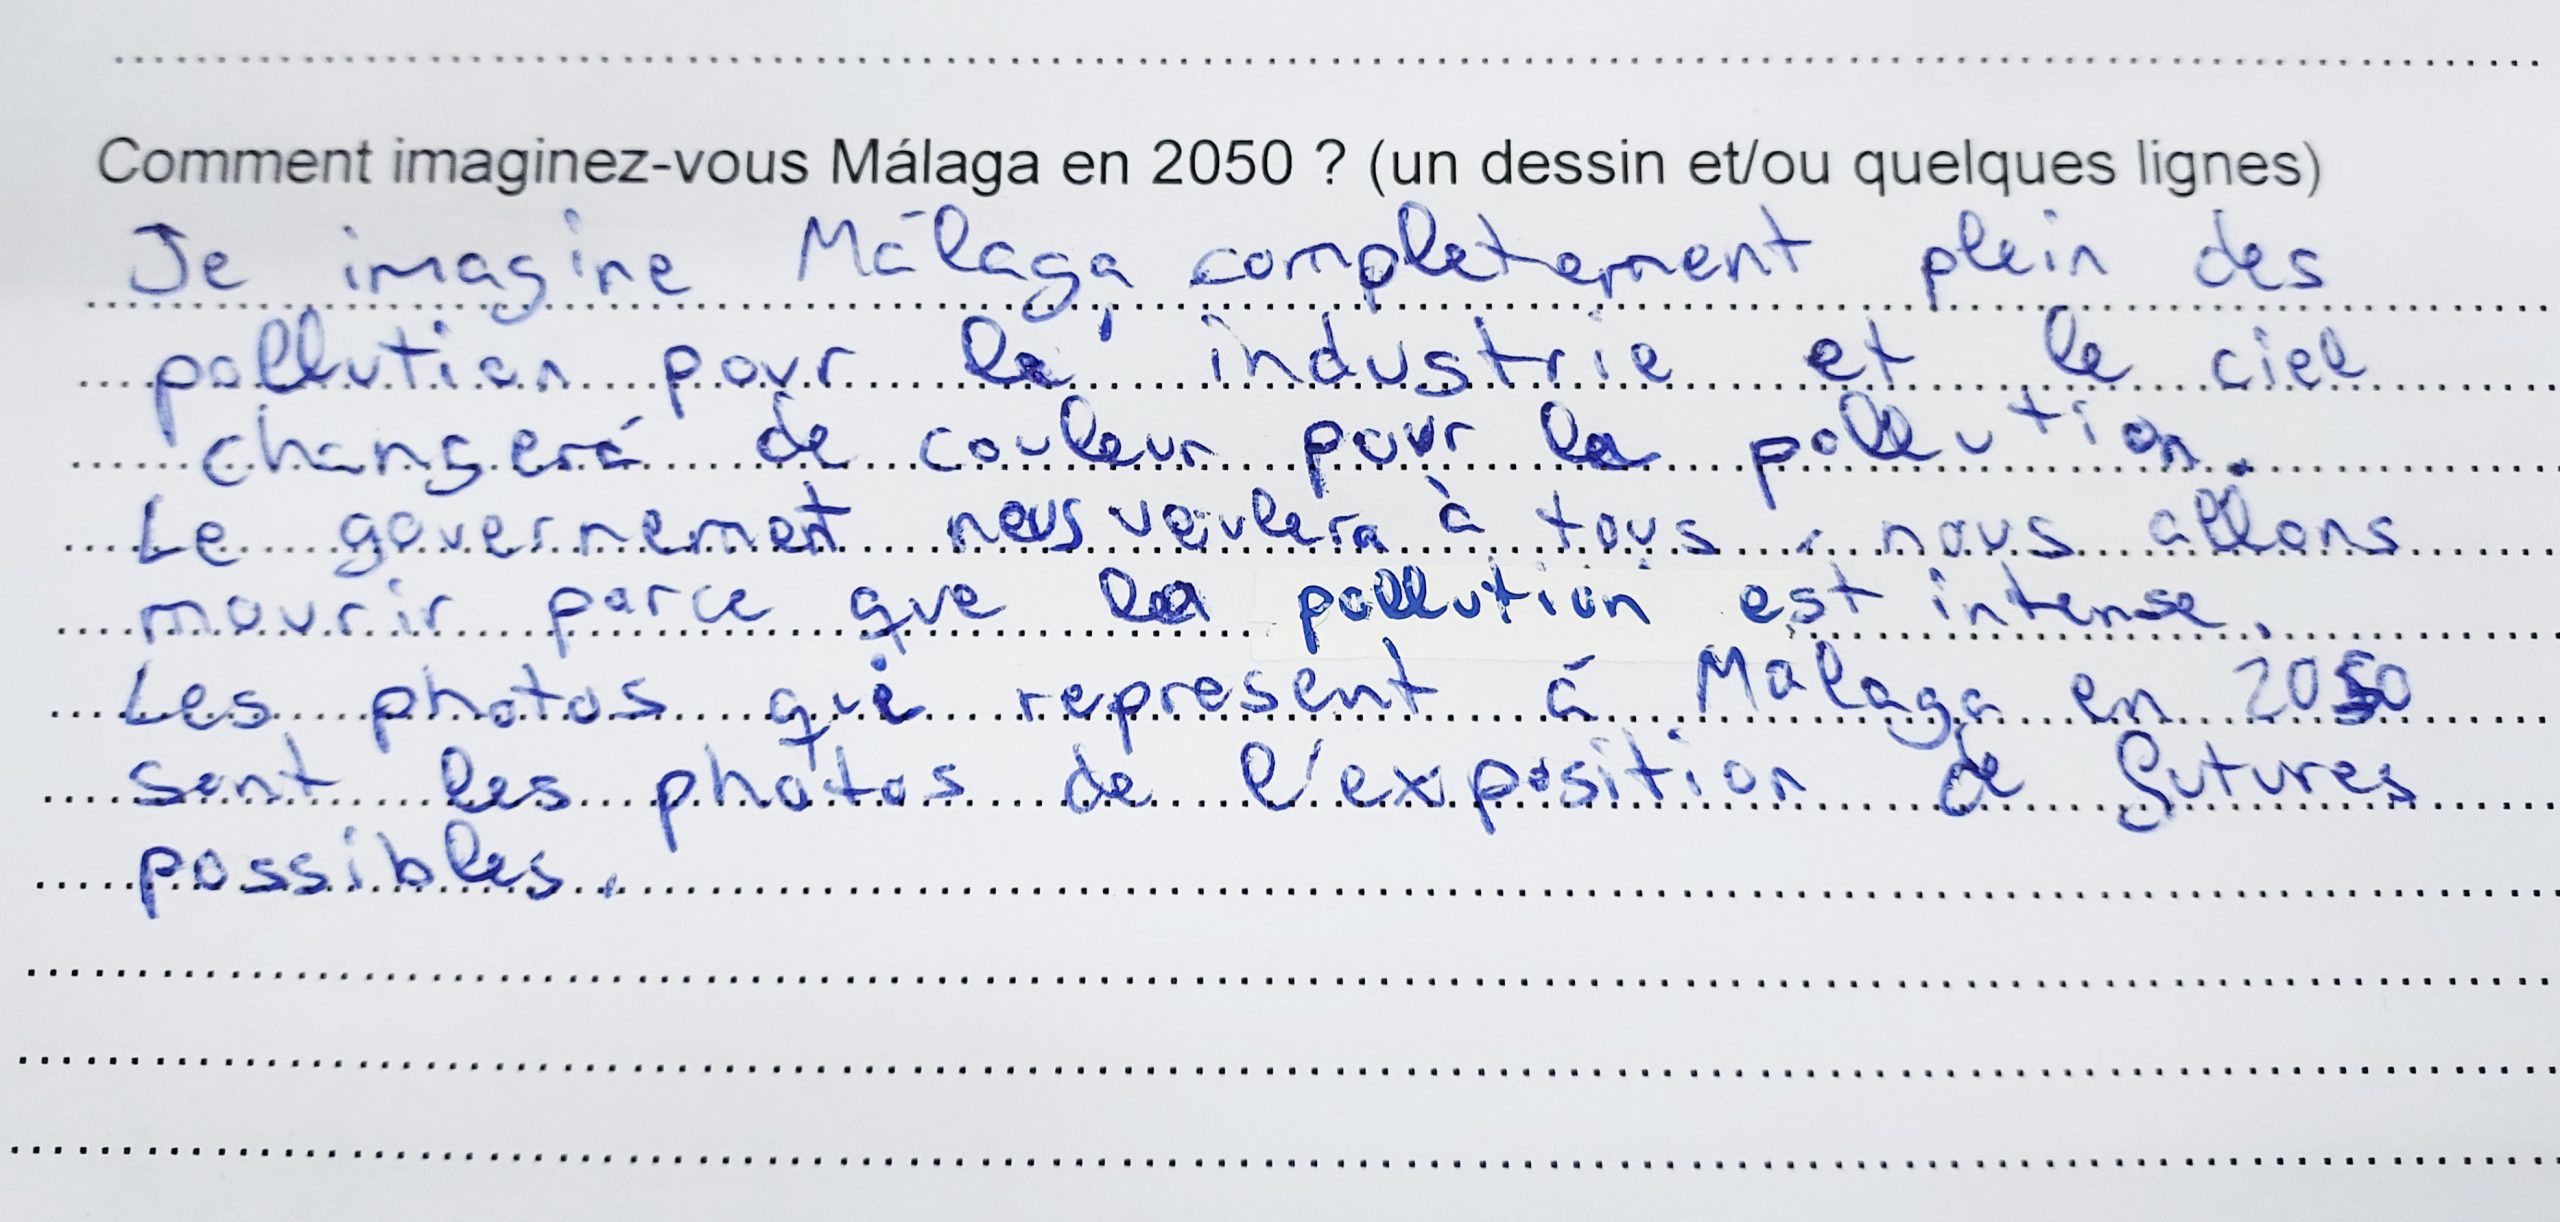 Comment imaginez-vous Málaga en 2050 ? (un dessin et/ou quelques lignes)
Je imagine Málaga completement plein des
pollution pour le' industrie et le ciel
changerá de couleur pour la pollution.
Le governemet nous voulera à tous, nous allons
mourir parce que la pollution est intense.
Les photos qui represent á Málaga en 2050
sont les photos de l'exposition de futures
possibles.